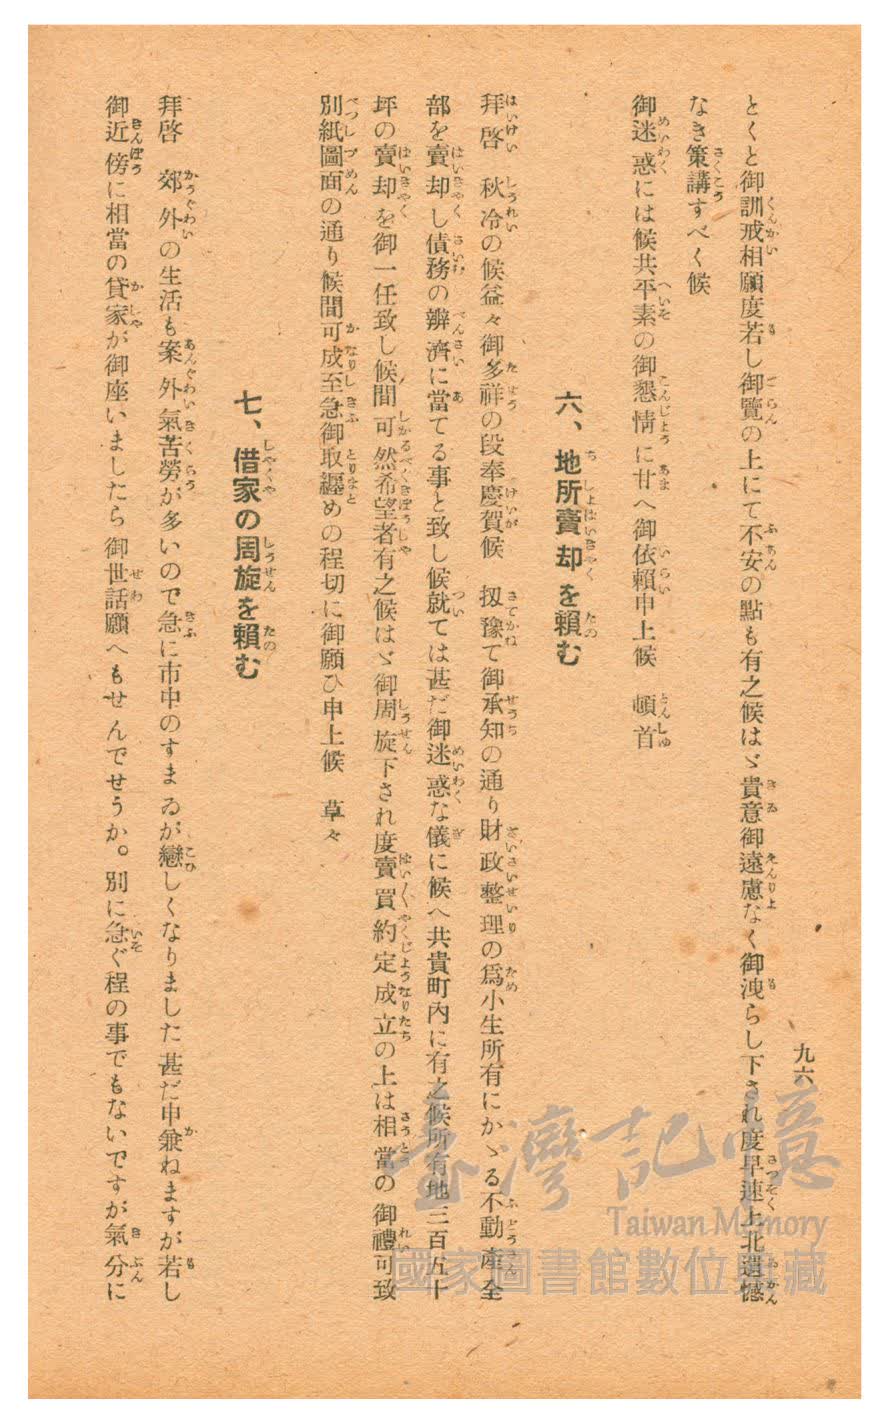 九六
とくと御訓戒相願度若し御覽の上にて不安の點も有之候はゞ貴意御遠慮なく御洩らし下され度早速上北遺憾
なき策講すべく候
御迷惑には候共平素の御懇情に甘へ御依賴申上候　頓首
六、地所賣却を賴む
拜啓　秋冷の候益々御多祥の段奉慶賀候　扨豫て御承知の通り財政整理の爲小生所有にかゝる不動產全
部を賣却し債務の辨濟に當てる事と致し候就ては甚だ御迷惑な儀に候へ共貴町內に有之候所有地三百五十
坪の賣却を御一任致し候間可然希望者有之候はゞ御周旋下され度賣買約定成立の上は相當の御禮可致
別紙圖面の通り候間可成至急御取纒めの程切に御願ひ申上候　草々
七、借家の周旋を賴む
拜啓　郊外の生活も案外氣苦勞が多いので急に市中のすまゐが戀しくなりました甚だ申兼ねますが若し
御近傍に相當の貸家が御座いましたら御世話願へもせんでせうか。別に急ぐ程の事でもないですが氣分に
臺灣記憶
Taiwan Memory
國家圖書館數位典藏